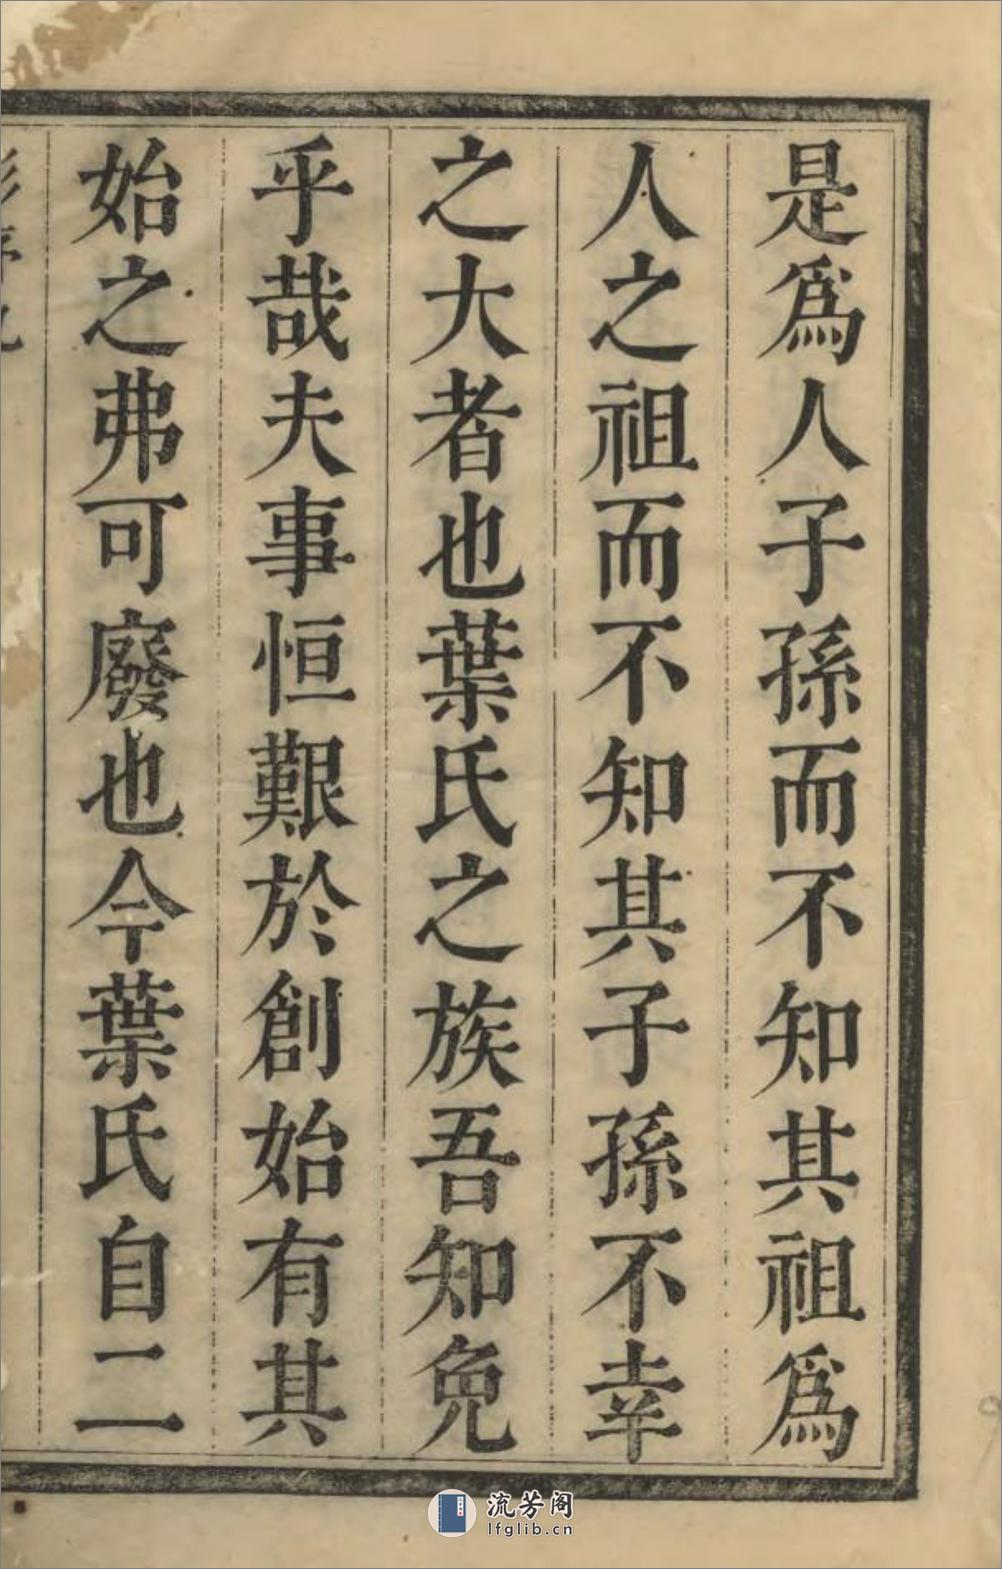 是爲人子孫而不知其祖爲
人之祖而不知其子孫不幸
之大者也葉氏之族吾知免
乎哉夫事恒艱於創始有其
始之弗可廢也今葉氏自二
流芳阁
lfglib.cn